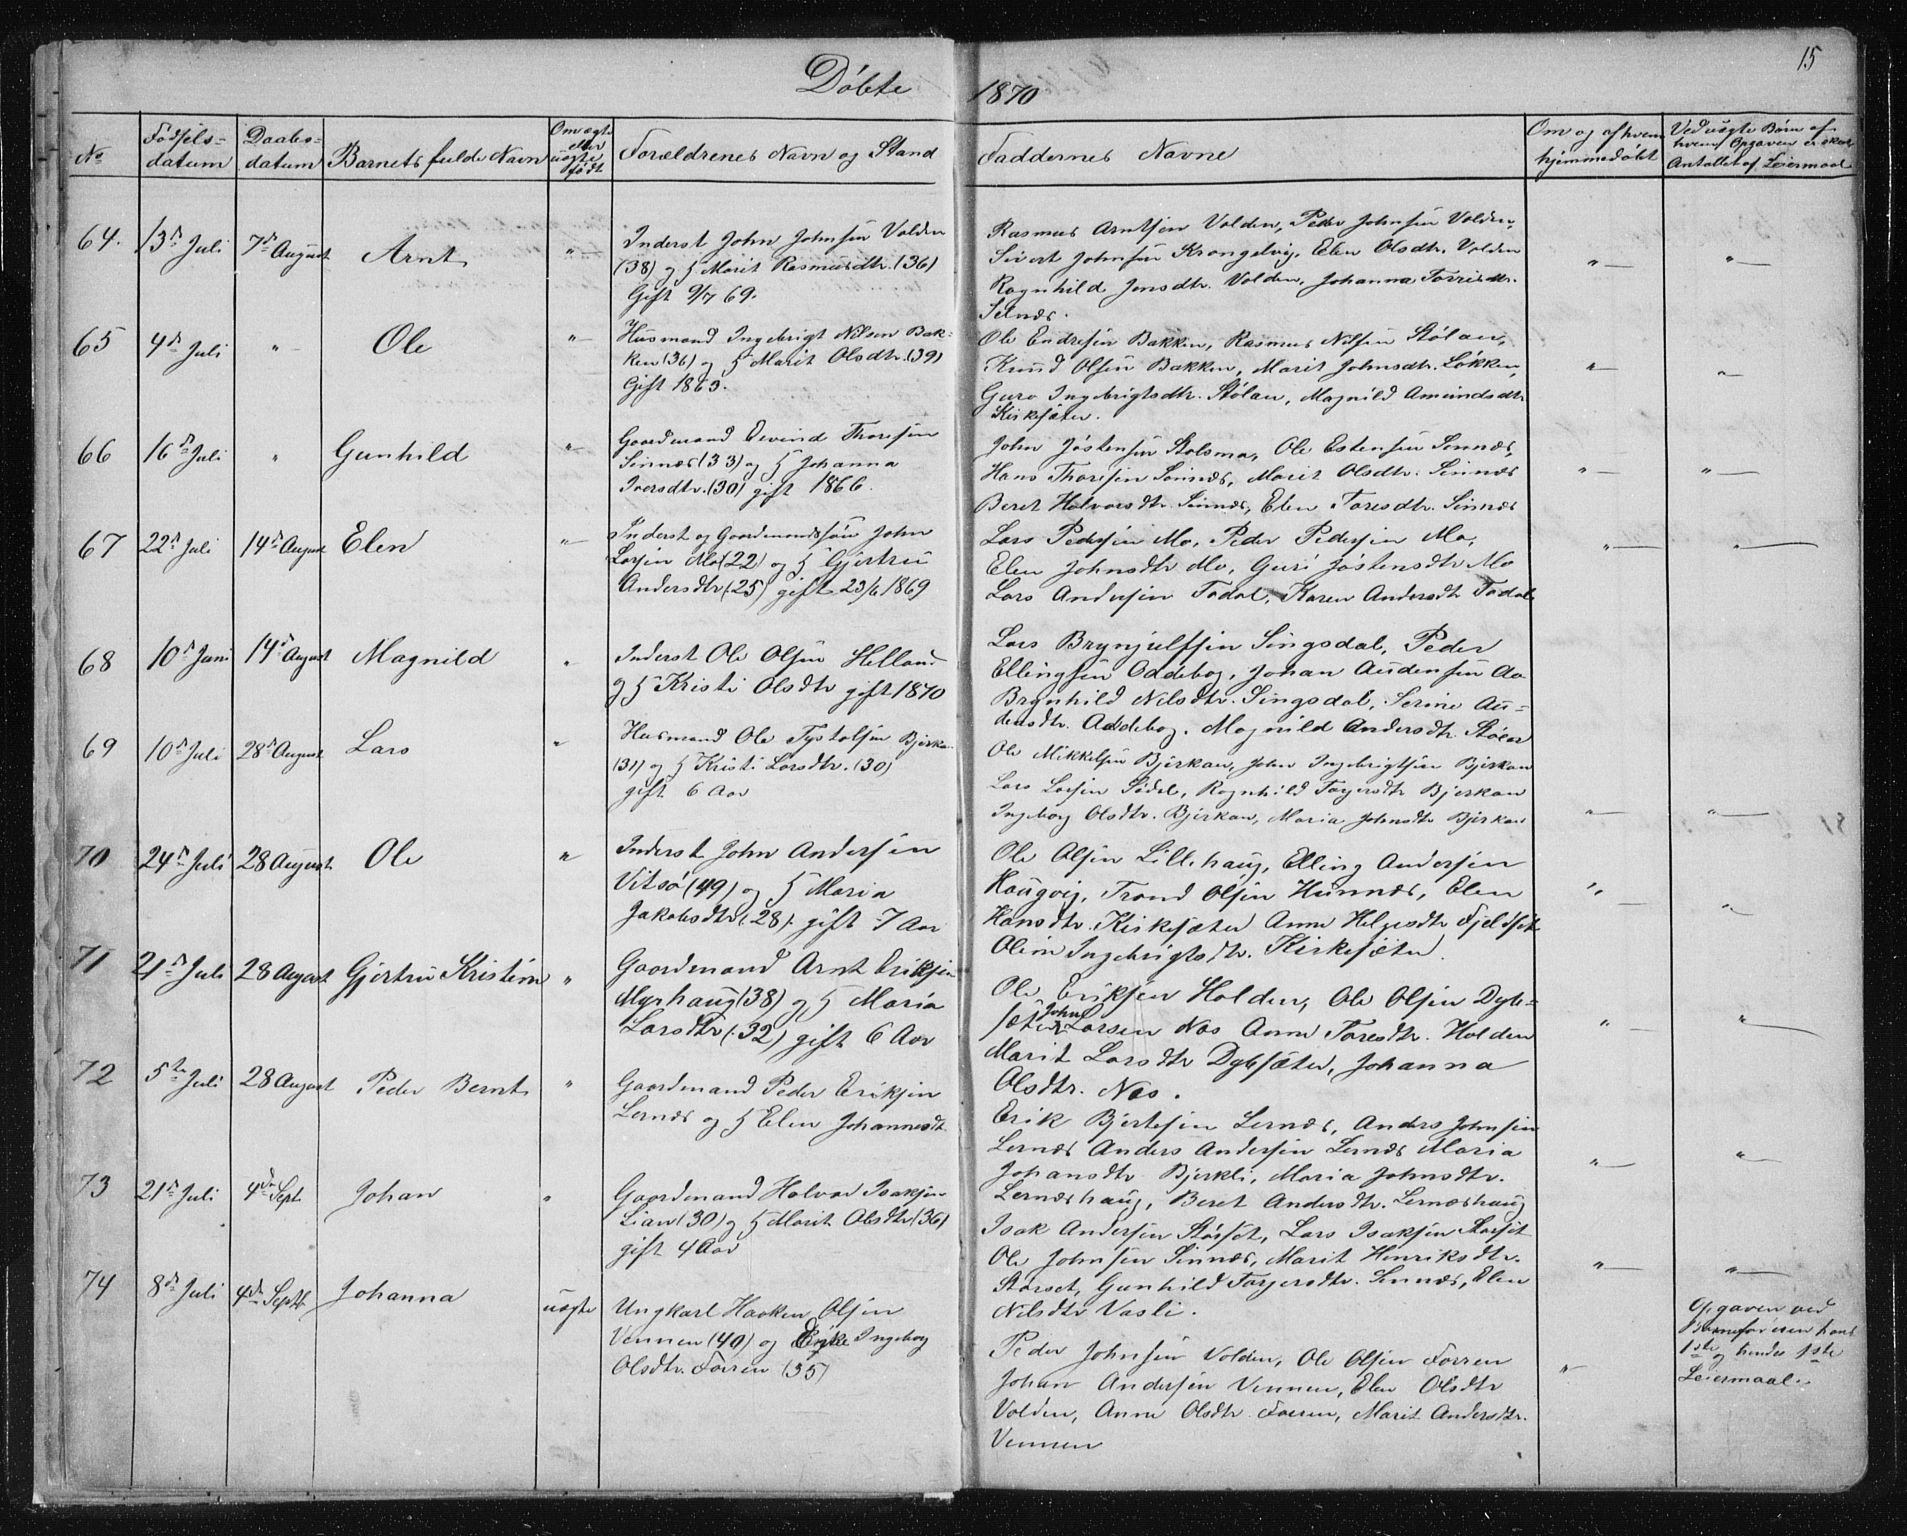 15
Døbte 1870
No
Fødsels-
datum
Daabs-
datum
Barnets fulde Navn
Om ægte
eller
uægte
født
Forældrenes Navn og Stand
Faddernes Navne
Om og af hvem
hjemmedøbt
Ved uægte Børn af
hvem Opgaven er skeet
Antallet af Leiermaal
64. 13de Juli 7de August Arnt "
Inderst John Johnsen Volden
(38) og H Marit Rasmusdtr. (36)
Gift 9/7 69.
Rasmus Arntsen Volden, Peder Johnsen Volden,
Sivert Johnsen Krongelvig, Elen Olsdtr. Volden
Ragnhild Jonsdtr. Volden, Johanna Torrisdtr.
Selnæs.
65 4de Juli " Ole "
Husmand Ingebrigt Nilsen Bak-
ken (36) og H Marit Olsdtr. (39)
Gift 1863.
Ole Endresen Bakken, Rasmus Nilsen Stølan,
Knud Olsen Bakken, Marit Johnsdtr. Løkken,
Guro Ingebrigtsdtr. Stølan, Magnild Amundsdtr
Kirkesæter.
66 16de Juli " Gunhild "
Gaardmand Eivind Thoresen
Sinnæs (33) og H Johanna
Iversdtr. (30) gift 1866.
John Jøstensen Stolsmo, Ole Estensen Sinnæs,
Hans Thoresen Sinnæs, Marit Olsdtr. Sinnæs
Beret Halvorsdtr. Sinnæs, Elen Toresdtr. Sinnæs
67 22de Juli 14de August Elen "
Inderst og Gaardmandssøn John
Larsen Mo (22) og H Gjertru
Andersdtr (25) gift 23/6 1869
Lars Pedersen Mo, Peder Pedersen Mo,
Elen Johnsdtr Mo, Guri Jøstensdtr Mo
Lars Andersen Todal, Karen Andersdtr Todal
68 10de Juni 14de August Magnild "
Inderst Ole Olsen Helland
og H Kristi Olsdtr gift 1870
Lars Brynjulfsen Singsdal, Peder
Ellingsen Oddebog, Johan Audensen Aa
Brynhild Nilsdtr. Singsdal, Serine Au-
densdtr. Addebog. Magnild Andersdtr. Støen
69 10de Juli 28de August Lars "
Husmand Ole Tystolsen Bjerkan
(31) og H Kristi Larsdtr. (30)
gift 6 Aar
Ole Mikkelsen Bjerkan, John Ingebrigtsen Bjerkan
Lars Larsen Sødal, Ragnhild Torgersdtr Bjerkan
Ingeborg Olsdtr. Bjerkan, Maria Johnsdtr Bjerkan
70 24de Juli 28 August Ole "
Inderst John Andersen
Vitsø (49) og H Maria
Jakobsdtr (28) gift 7 Aar
Ole Olsen Lillehaug, Elling Andersen
Haugvig, Trond Olsen Hunnæs, Elen
Hansdtr. Kirkesæter Anne Helgesdtr Fjeldset
Oline Ingebrigtsdtr. Kirkesæter.
71 21de Juli 28 August Gjertru Kristine "
Gaardmand Arnt Eriksen
Myrhaug (38) og H Maria
Larsdtr (32) gift 6 Aar
Ole Eriksen Holden, Ole Olsen Dybe-
sæter, John Larsen Næs Anne Toresdtr. Holden
Marit Larsdtr Dybsæter, Johanna
Olsdtr. Næs.
72 5te Juli 28 August Peder Bernt "
Gaardmand Peder Eriksen
Lernæs og H Elen Johannesdtr.
Erik Bjertesen Lernæs, Anders Johnsen
Lernæs Anders Andersen Lernæs Maria
Johansdtr Bjerkli, Maria Johnsdtr.
Lernæshaug, Beret Andersdtr. Lernæshaug
73 21de Juli 4de Sept. Johan "
Gaardmand Halvor Isaksen
Lian (30) og H Marit Olsdtr (36)
gift 4 Aar
Isak Andersen Storset, Lars Isaksen Storset
Ole Johnsen Sinnæs, Marit Henriksdtr.
Storset, Gunhild Torgersdtr. Sinnæs, Elen
Nilsdtr Vasli.
74 8de Juli 4de Septb Johanna uægte
Ungkarl Haaken Olsen
Vennen (40) og Enke Ingeborg
Olsdtr. Forren (35)
Peder Johnsen Volden, Ole Olsen Forren
Johan Andersen Vennen, Elen Olsdtr
Volden, Anne Olsdtr. Forren, Marit Andersdtr.
Vennen
Opgaven ved
Barnefaderen hans
1ste og hendes 1ste
Leiermaal.